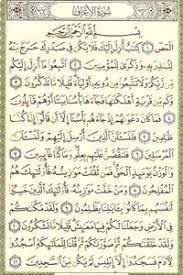 سُورَةُ الأَعْرَافِ
بِسْمِ اللَّهِ الرَّحْمَٰنِ الرَّحِيمِ
الٓمٓصٓ ١ كِتَٰبٌ أُنزِلَ إِلَيْكَ فَلَا يَكُن فِي صَدْرِكَ حَرَجٌ مِّنْهُ
لِتُنذِرَ بِهِۦ وَذِكْرَىٰ لِلْمُؤْمِنِينَ ٢ ٱتَّبِعُوا۟ مَآ أُنزِلَ إِلَيْكُم
مِّن رَّبِّكُمْ وَلَا تَتَّبِعُوا۟ مِن دُونِهِۦٓ أَوْلِيَآءَ قَلِيلًا مَّا تَذَكَّرُونَ
٣ وَكَم مِّن قَرْيَةٍ أَهْلَكْنَٰهَا فَجَآءَهَا بَأْسُنَا بَيَٰتًا أَوْ هُمْ قَآئِلُونَ
٤ فَمَا كَانَ دَعْوَىٰهُمْ إِذْ جَآءَهُم بَأْسُنَآ إِلَّآ أَن قَالُوٓا۟ إِنَّا كُنَّا
ظَٰلِمِينَ ٥ فَلَنَسْـَٔلَنَّ ٱلَّذِينَ أُرْسِلَ إِلَيْهِمْ وَلَنَسْـَٔلَنَّ
ٱلْمُرْسَلِينَ ٦ فَلَنَقُصَّنَّ عَلَيْهِم بِعِلْمٍ وَمَا كُنَّا غَآئِبِينَ
٧ وَٱلْوَزْنُ يَوْمَئِذٍ ٱلْحَقُّ فَمَن ثَقُلَتْ مَوَٰزِينُهُۥ فَأُو۟لَٰٓئِكَ هُمُ
ٱلْمُفْلِحُونَ ٨ وَمَنْ خَفَّتْ مَوَٰزِينُهُۥ فَأُو۟لَٰٓئِكَ ٱلَّذِينَ خَسِرُوٓا۟
أَنفُسَهُم بِمَا كَانُوا۟ بِـَٔايَٰتِنَا يَظْلِمُونَ ٩ وَلَقَدْ مَكَّنَّٰكُمْ
فِي ٱلْأَرْضِ وَجَعَلْنَا لَكُمْ فِيهَا مَعَٰيِشَ قَلِيلًا مَّا تَشْكُرُونَ
١٠ وَلَقَدْ خَلَقْنَٰكُمْ ثُمَّ صَوَّرْنَٰكُمْ ثُمَّ قُلْنَا لِلْمَلَٰٓئِكَةِ ٱسْجُدُوا۟
لِـَٔادَمَ فَسَجَدُوٓا۟ إِلَّآ إِبْلِيسَ لَمْ يَكُن مِّنَ ٱلسَّٰجِدِينَ ١١